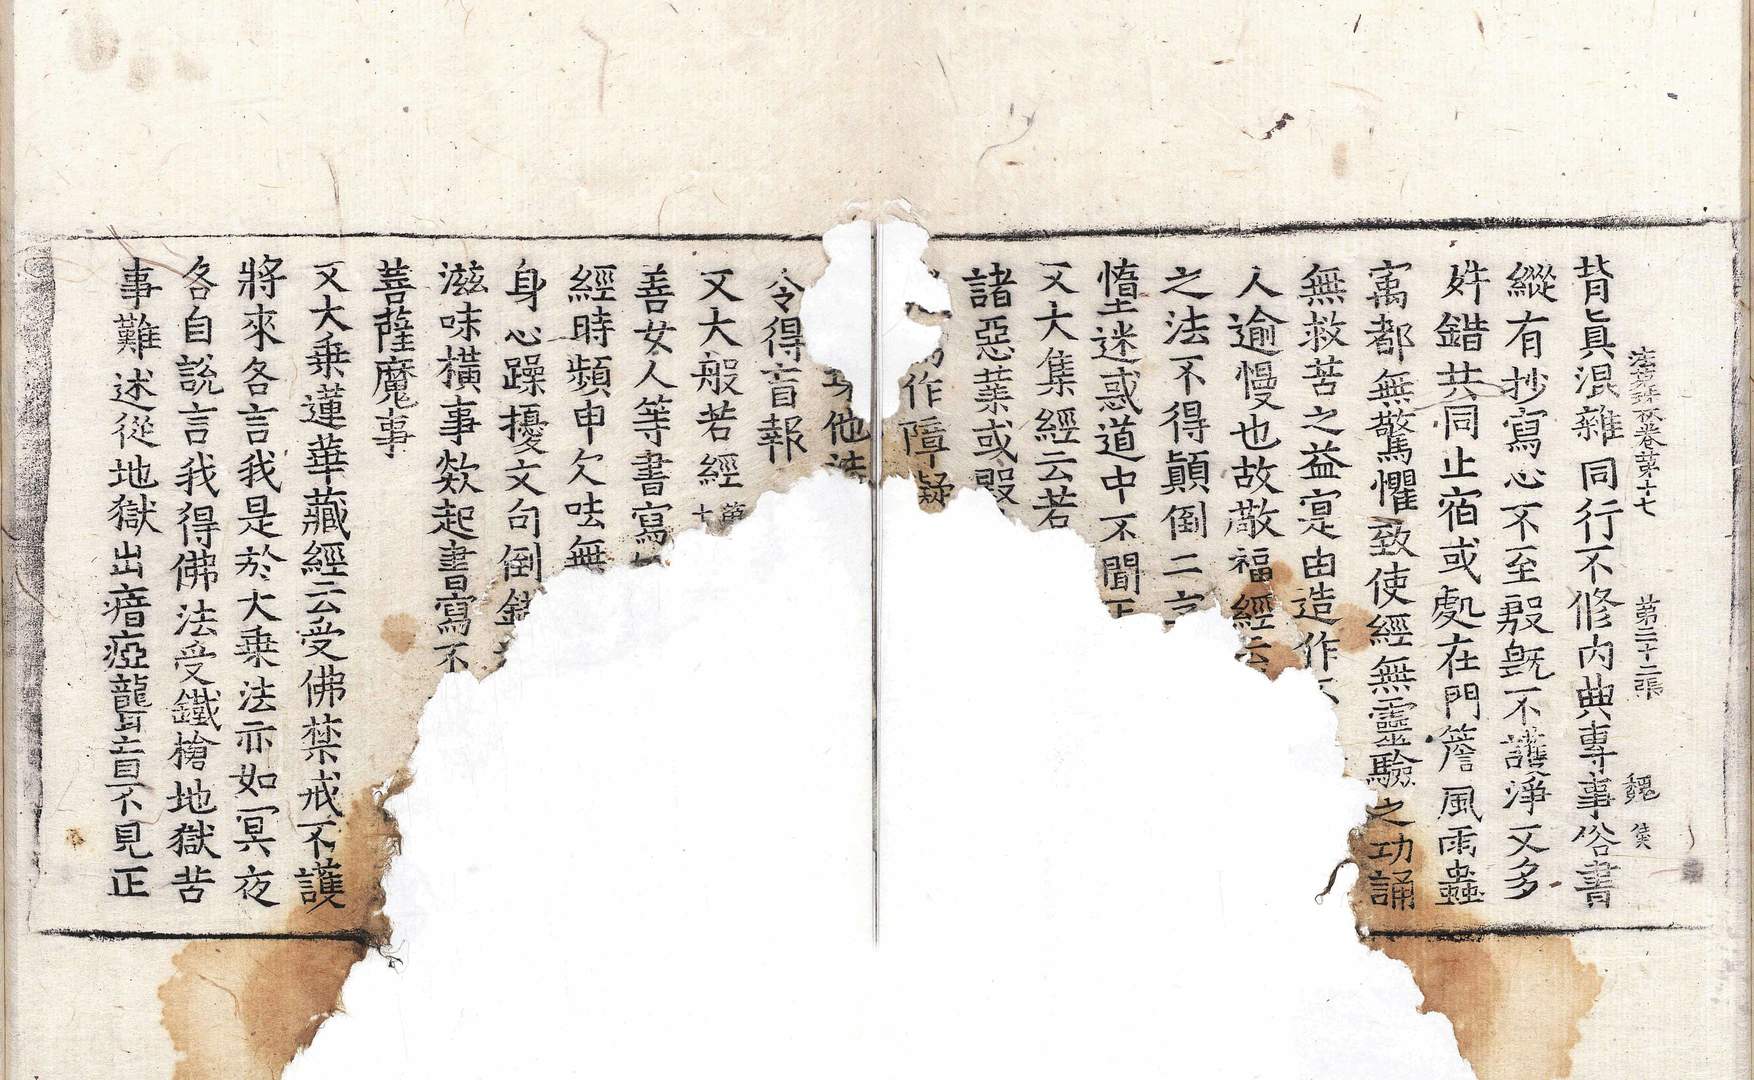 背眞混雜同行不修內典專事俗書
法苑珠林卷第十七 第三十二張 魏
縱有抄寫心不至殷旣不護淨又多
舛錯共同止宿或處在門簷風雨蟲
寓都無驚懼致使經無靈驗之功誦
無救苦之益寔由造作不
人逾慢也故敬福經云
之法不得顚倒二字
墮迷惑道中不聞正
又大集經云若
諸惡業或毀
作障礙
他法
令得盲報
又大般若經
善女人等書寫
經時頻申欠呿無
身心躁擾文句倒錯
滋味橫事欻起書寫不
菩薩魔事
又大乗蓮華藏經云受佛禁戒不護
將來各言我是於大乗法亦如冥夜
各自說言我得佛法受鐵槍地獄苦
事難述從地獄出瘖瘂聾盲不見正